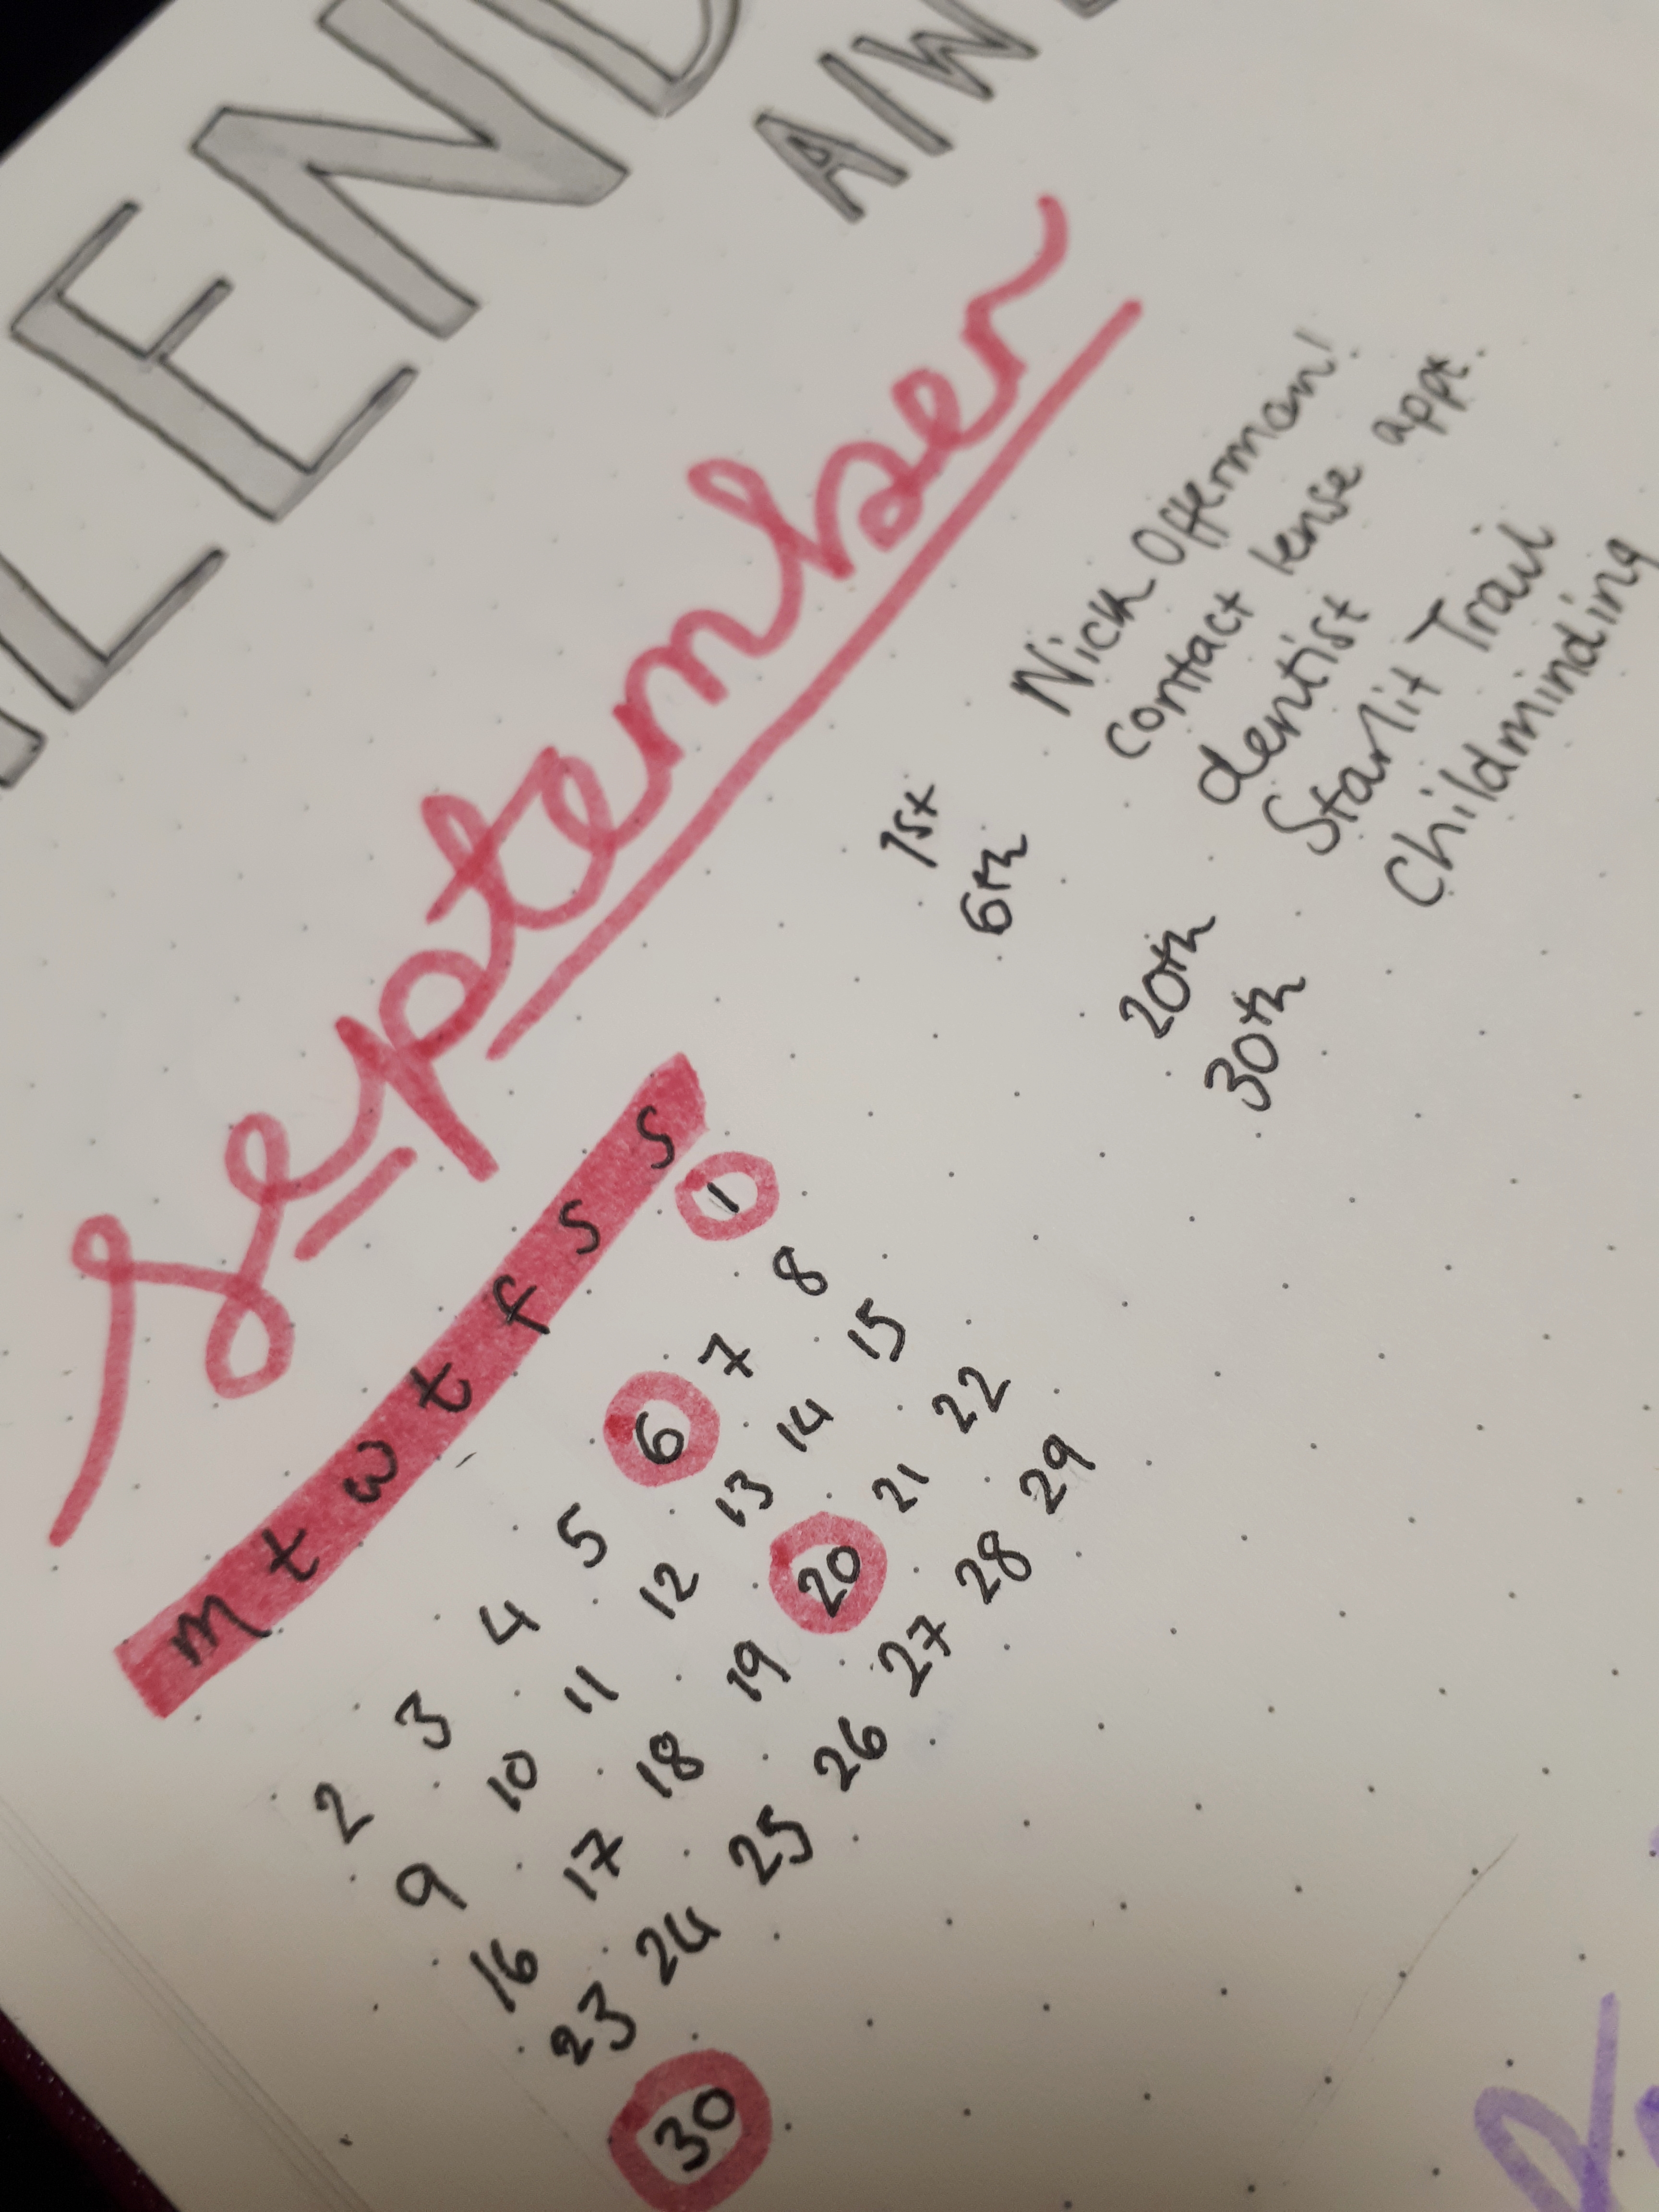 September
m t w t f s s
1
2 3 4 5 6 7 8
9 10 11 12 13 14 15
16 17 18 19 20 21 22
23 24 25 26 27 28 29
30
1st Nick Offerman!
6th contact lense appt.
dentist
20th Starlit Trail
30th Childminding